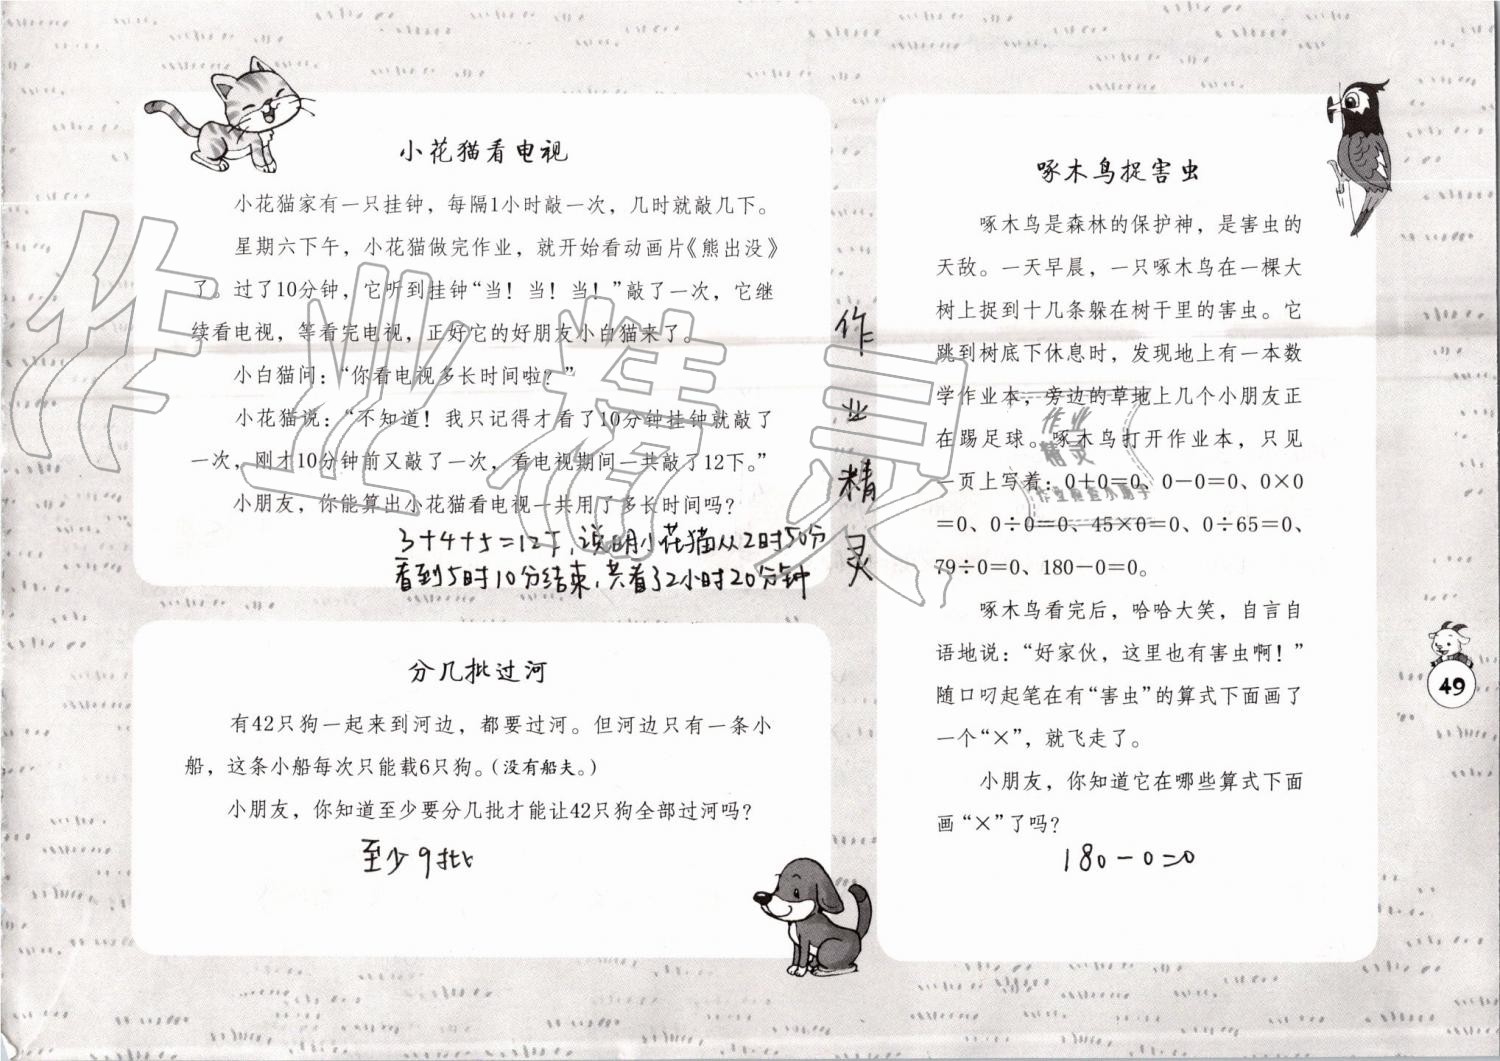 小花猫看电视
小花猫家有一只挂钟，每隔1小时敲一次，几时就敲几下。
星期六下午，小花猫做完作业，就开始看动画片《熊出没》
了。过了10分钟，它听到挂钟“当！当！当！”敲了一次，它继
续看电视，等看完电视，正好它的好朋友小白猫来了。
小白猫问：“你看电视多长时间啦？”
小花猫说：“不知道！我只记得才看了10分钟挂钟就敲了
一次，刚才10分钟前又敲了一次，看电视期间一共敲了12下。”
小朋友，你能算出小花猫看电视一共用了多长时间吗？
3+4+5=12下，说明小花猫从2时50分
看到5时10分结束，共看了2小时20分钟
分几批过河
有42只狗一起来到河边，都要过河。但河边只有一条小
船，这条小船每次只能载6只狗。（没有船夫。）
小朋友，你知道至少要分几批才能让42只狗全部过河吗？
至少9批
作业精灵
作业精灵
啄木鸟捉害虫
啄木鸟是森林的保护神，是害虫的
天敌。一天早晨，一只啄木鸟在一棵大
树上捉到十几条躲在树干里的害虫。它
跳到树底下休息时，发现地上有一本数
学作业本，旁边的草地上几个小朋友正
在踢足球。啄木鸟打开作业本，只见
一页上写着：0+0=0、0－0=0、0×0
=0、0÷0=0、45×0=0、0÷65=0、
79÷0=0、180－0=0。
啄木鸟看完后，哈哈大笑，自言自
语地说：“好家伙，这里也有害虫啊！”
随口叼起笔在有“害虫”的算式下面画了
一个“×”，就飞走了。
小朋友，你知道它在哪些算式下面
画“×”了吗？
180－0=0
作业
精灵
49